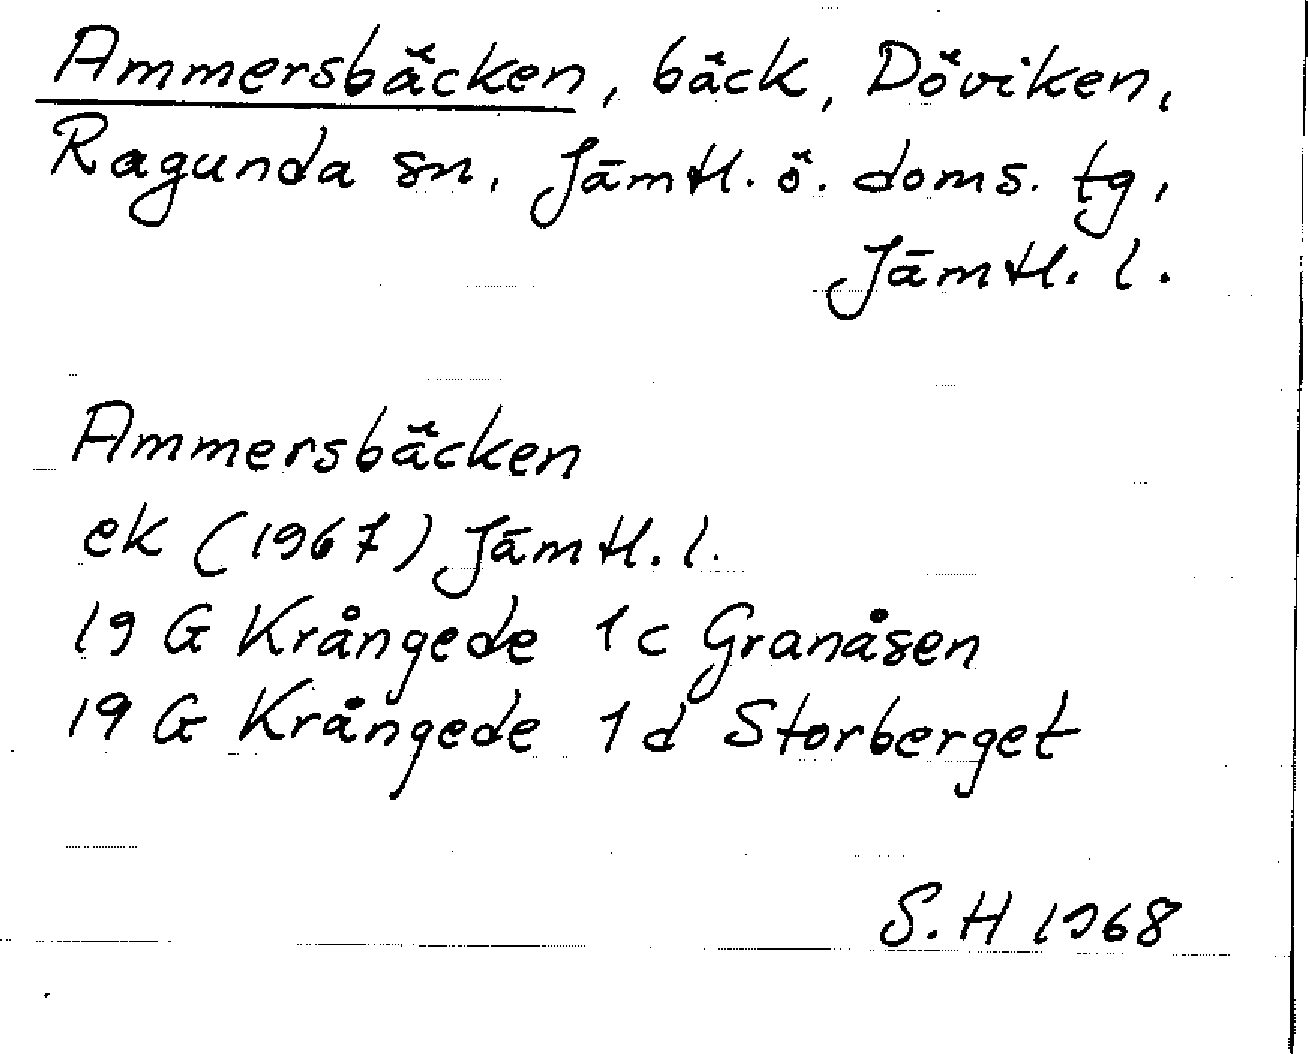 Ammersbäcken, bäck, Döviken,
Ragunda sn. Jämtl. ö. doms. tg,
Jämtl. l.
Ammersbäcken
ek (1967) Jämtl. l.
19 G Krångede 1c Granåsen
19 G Krångede 1d Storberget
S.H 1968